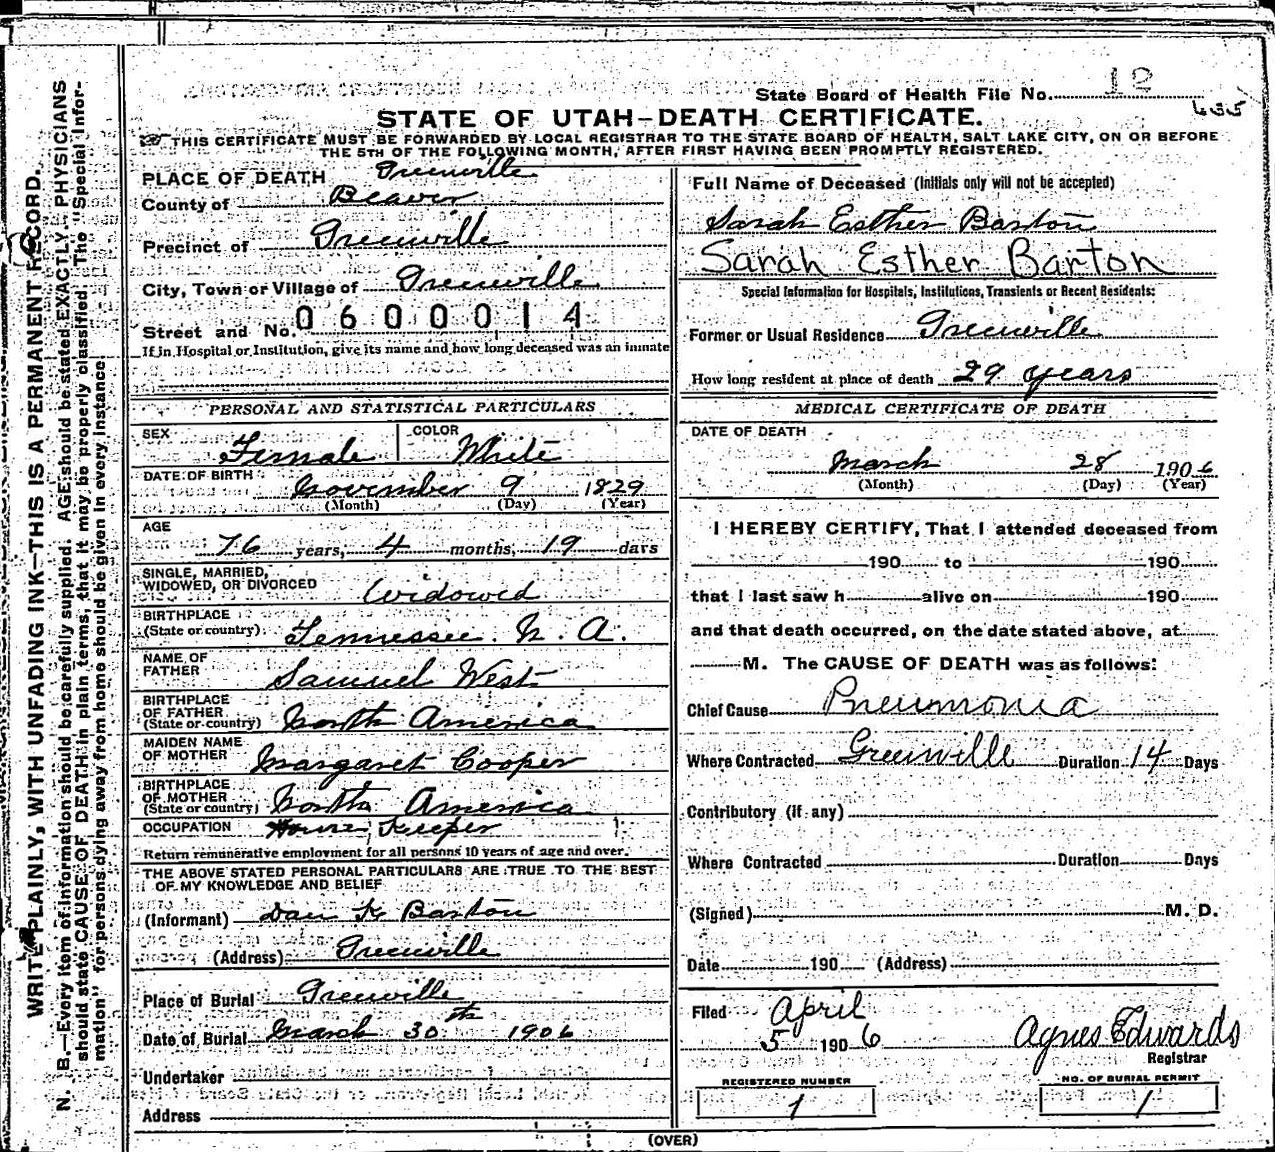 State Board of Health File No. 12
635
STATE OF UTAH—DEATH CERTIFICATE.
THIS CERTIFICATE MUST BE FORWARDED BY LOCAL REGISTRAR TO THE STATE BOARD OF HEALTH, SALT LAKE CITY, ON OR BEFORE
THE 5TH OF THE FOLLOWING MONTH, AFTER FIRST HAVING BEEN PROMPTLY REGISTERED.
WRITE PLAINLY, WITH UNFADING INK—THIS IS A PERMANENT RECORD.
N. B.—Every item of information should be carefully supplied. AGE should be stated EXACTLY. PHYSICIANS
should state CAUSE OF DEATH in plain terms, that it may be properly classified. The "Special Infor-
mation" for persons dying away from home should be given in every instance.
PLACE OF DEATH Greenville
County of Beaver
Precinct of Greenville
City, Town or Village of Greenville
Street and No. 0600014
If in Hospital or Institution, give its name and how long deceased was an inmate
PERSONAL AND STATISTICAL PARTICULARS
SEX Female COLOR White
DATE OF BIRTH November 9 1829
(Month) (Day) (Year)
AGE
76 years, 4 months, 19 days
SINGLE, MARRIED,
WIDOWED, OR DIVORCED Widowed
BIRTHPLACE
(State or country) Tennessee. N. A.
NAME OF
FATHER Samuel West
BIRTHPLACE
OF FATHER
(State or country) North America
MAIDEN NAME
OF MOTHER Margaret Cooper
BIRTHPLACE
OF MOTHER
(State or country) North America
OCCUPATION House Keeper
Return remunerative employment for all persons 10 years of age and over.
THE ABOVE STATED PERSONAL PARTICULARS ARE TRUE TO THE BEST
OF MY KNOWLEDGE AND BELIEF
(Informant) Dan K Barton
(Address) Greenville
Place of Burial Greenville
Date of Burial March 30th 1906
Undertaker
Address
Full Name of Deceased (Initials only will not be accepted)
Sarah Esther Barton
Sarah Esther Barton
Special Information for Hospitals, Institutions, Transients or Recent Residents:
Former or Usual Residence Greenville
How long resident at place of death 29 years
MEDICAL CERTIFICATE OF DEATH
DATE OF DEATH
March 28 1906
(Month) (Day) (Year)
I HEREBY CERTIFY, That I attended deceased from
190 to 190
that I last saw h alive on 190
and that death occurred, on the date stated above, at
M. The CAUSE OF DEATH was as follows:
Chief Cause Pneumonia
Where Contracted Greenville Duration 14 Days
Contributory (if any)
Where Contracted Duration Days
(Signed) M. D.
Date 190 (Address)
Filed April
5 1906 Agnes Edwards
Registrar
REGISTERED NUMBER NO. OF BURIAL PERMIT
1 1
(OVER)